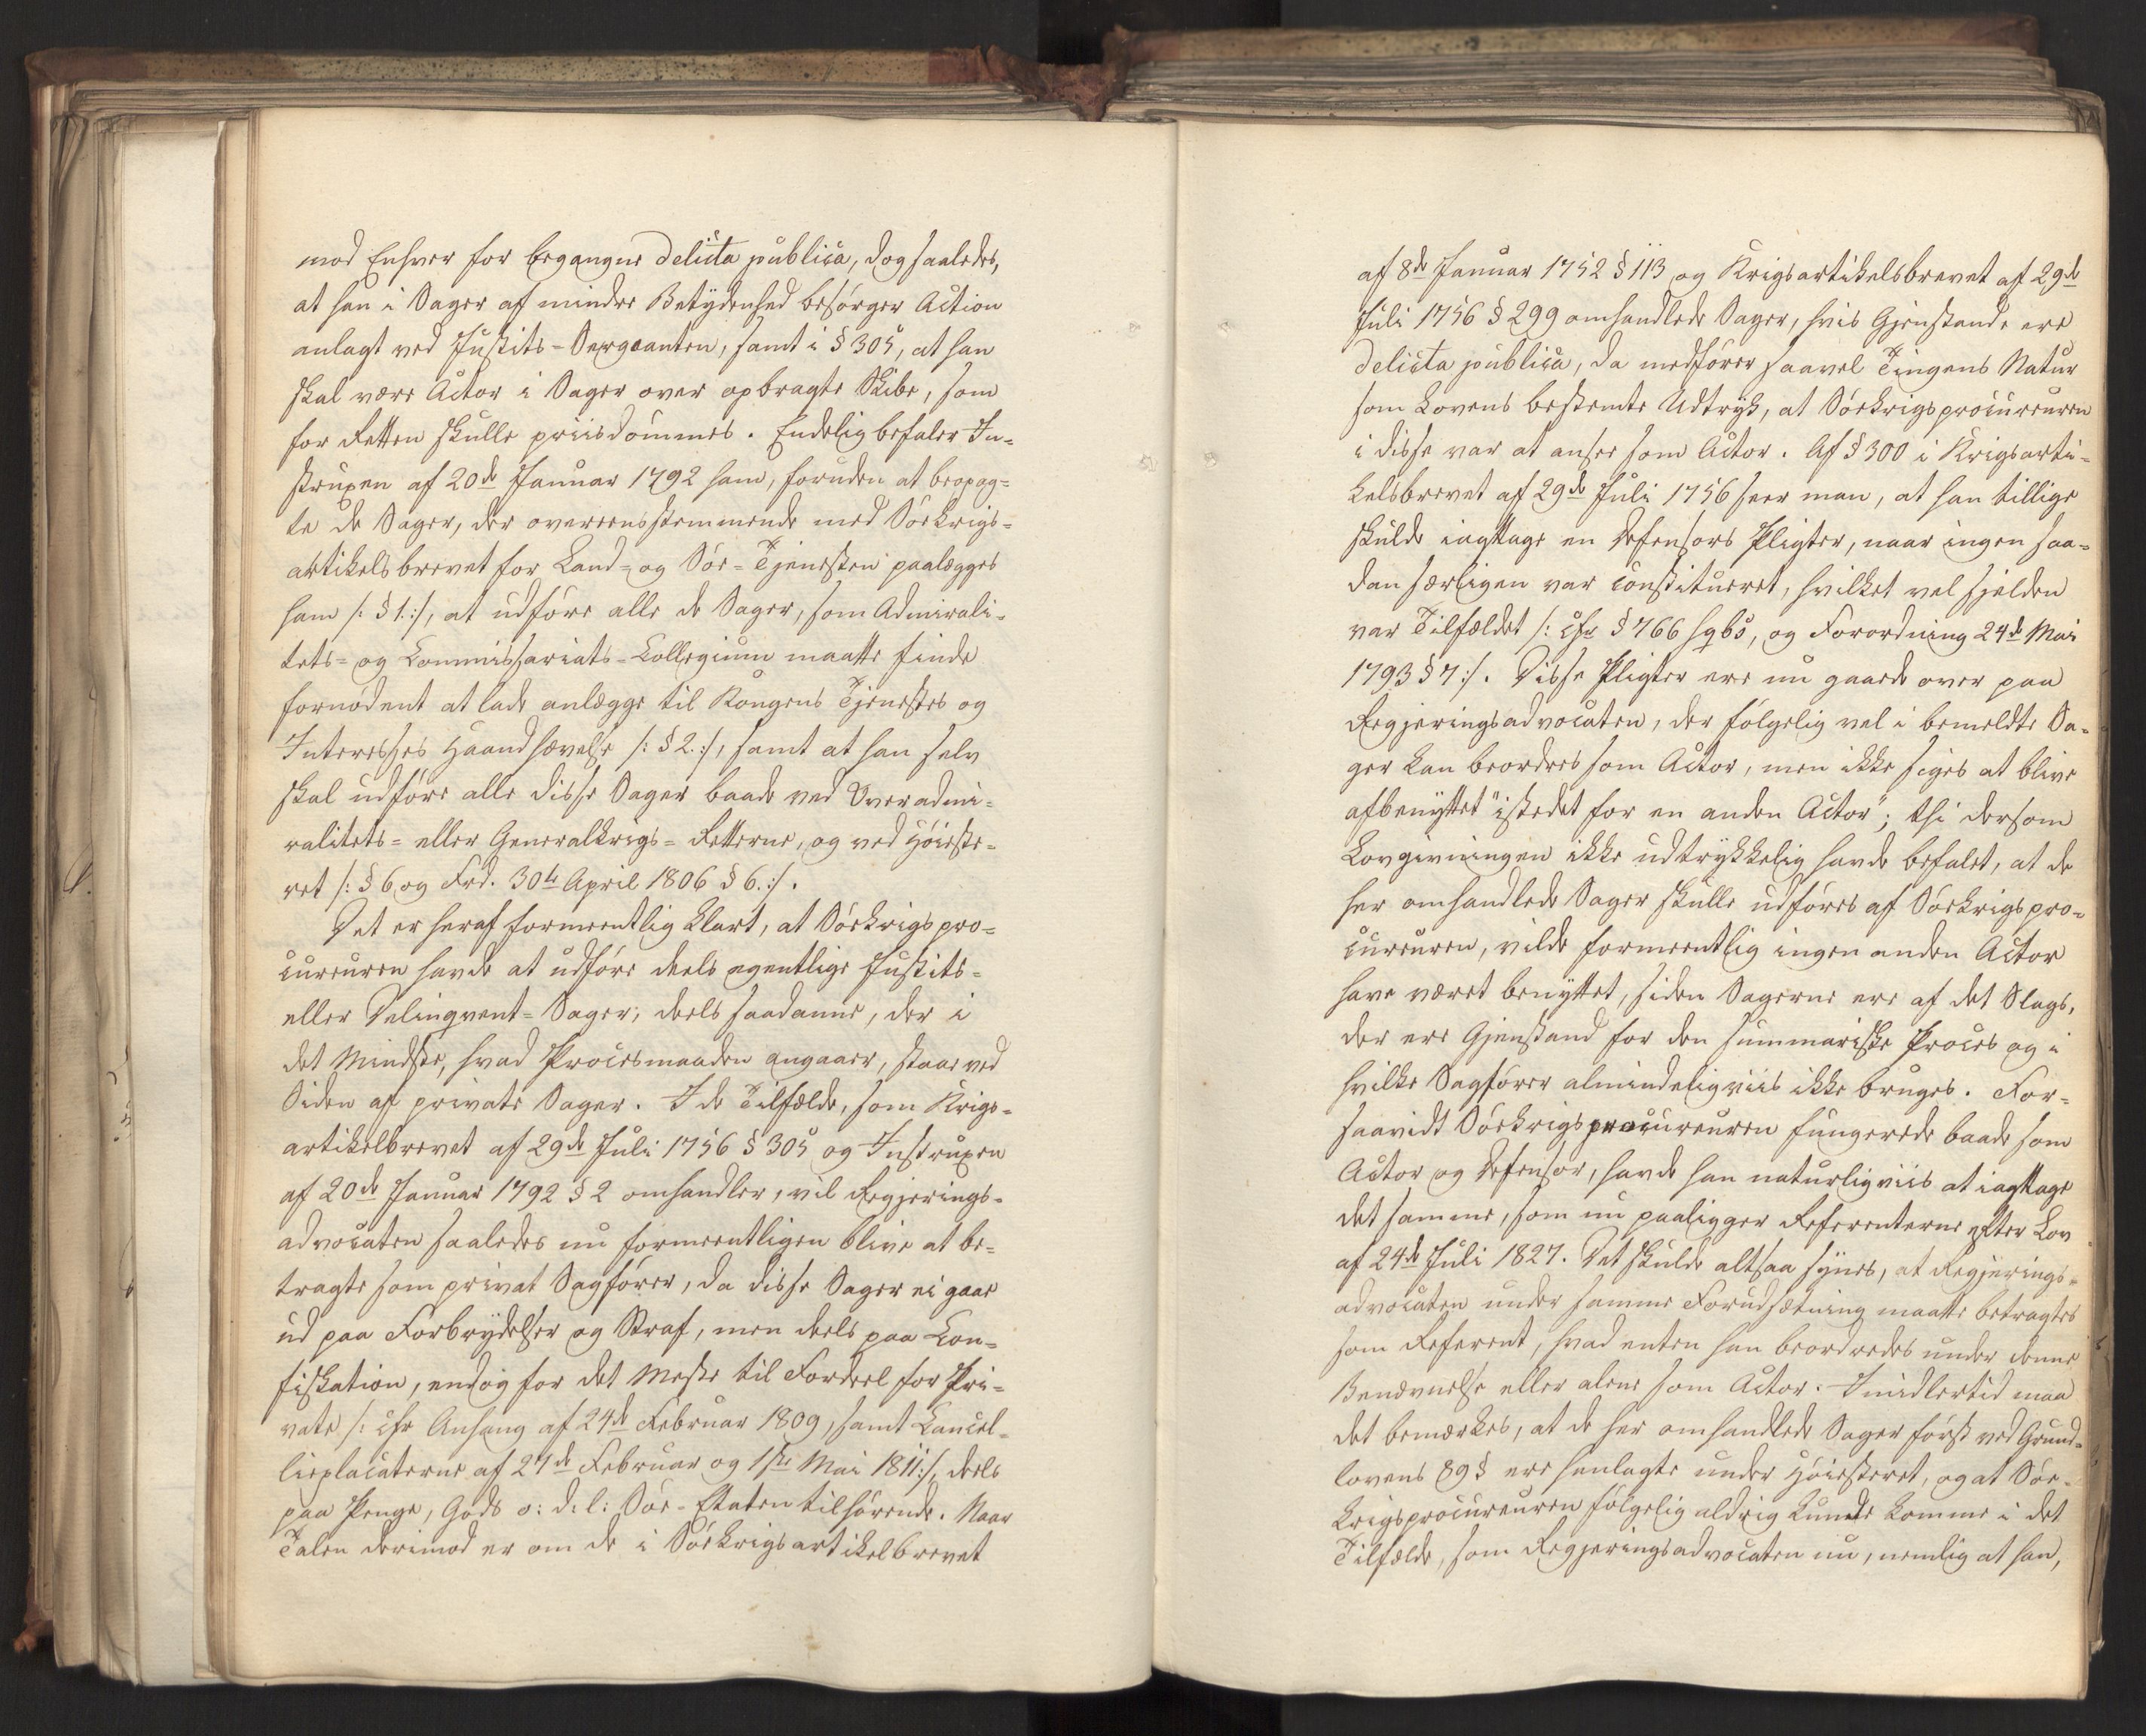 mod Enhver for begangne delicta publica, dog saaledes,
at han i Sager af mindre Betydenhed besörger Action
anlagt ved Justits-Sergeanten, samt i § 305, at han
skal være Actor i Sager over opbragte Skibe, som
for Retten skulle priisdömmes. Endelig befaler In-
struxen af 20de Januar 1792 ham, foruden at
te de Sager, der overeensstemmende med Söekrigs-
artikelsbrevet for Land- og Söe-Tjenesten paalægges
ham /: § 1. :/, at udföre alle de Sager, som Admirali-
tets- og Commissariats-Collegium maatte finde
fornödent at lade anlægge til Kongens Tjenestes og
Interesses Haandhævelse /: § 2. :/, samt at han selv
skal udföre alle disse Sager baade ved Overadmi-
ralitets- eller Generalkrigs-Retterne, og ved Höieste-
ret /: § 6 og Frd. 30te April 1806 § 6. :/.
Det er heraf formeentlig klart, at Söekrigspro-
cureuren havde at udföre deels egentlige Justits-
eller Delinqvent-Sager, deels saadanne, der i
det Mindste, hvad Procesmaaden angaaer, staae ved
Siden af private Sager. I de Tilfælde, som Krigs-
artikelbrevet af 29de Juli 1756 § 305 og Instruxen
af 20de Januar 1792 § 2 omhandler, vil Regjerings-
advocaten saaledes nu formeentligen blive at be-
tragte som privat Sagförer, da disse Sager ei gaae
ud paa Forbrydelser og Straf, men deels paa Con-
fiskation, endog for det Meste til Fordeel for Pri-
vate /: cfr Anhang af 24de Februar 1809, samt Cancel-
lieplacaterne af 27de Februar og 1ste Mai 1811 :/, deels
paa Penge, Gods o: d: l: Söe-Etaten tilhörende. Naar
Talen derimod er om de i Söekrigsartikelbrevet
af 8de Januar 1752 § 113 og Krigsartikelsbrevet af 29de
Juli 1756 § 299 omhandlede Sager, hvis Gjenstande ere
delicta publica, da medförer saavel Tingens Natur
som Lovens bestemte Udtryk, at Söekrigsprocureuren
i disse var at ansee som Actor. Af § 300 i Krigsarti-
kelsbrevet af 29de Juli 1756 seer man, at han tillige
skulde iagttage en Defensors Pligter, naar ingen saa-
dan særligen var constitueret, hvilket vel sjelden
var Tilfældet /: cfr § 766 sqbs, og Forordning 24de Mai
1793 § 7 :/. Disse Pligter ere nu gaaede over paa
Regjeringsadvocaten, der fölgelig vel i bemeldte Sa-
ger kan beordres som Actor, men ikke siges at blive
afbenyttet "istedet for en anden Actor"; thi dersom
Lovgivningen ikke udtrykkelig havde befalet, at de
her omhandlede Sager skulle udföres af Söekrigspro-
cureuren, vilde formeentlig ingen anden Actor
have været benyttet, siden Sagerne ere af det Slags,
der ere Gjenstand for den summariske Proces og i
hvilke Sagförer almindeligviis ikke bruges. For-
saavidt Söekrigsprocureuren fungerede baade som
Actor og Defensor, havde han naturligviis at iagttage
det samme, som nu paaligger Referenterne efter Lov
af 24de Juli 1827. Det skulde altsaa synes, at Regjerings-
advocaten under samme Forudsætning maatte betragtes
som Referent, hvad enten han beordredes under denne
Benævnelse eller alene som Actor. Imidlertid maa
det bemærkes, at de her omhandlede Sager först ved Grund-
lovens 89 § ere henlagte under Höiesteret, og at Söe-
krigsprocureuren fölgelig aldrig kunde komme i det
Tilfælde, som Regjeringsadvocaten nu, nemlig at han,